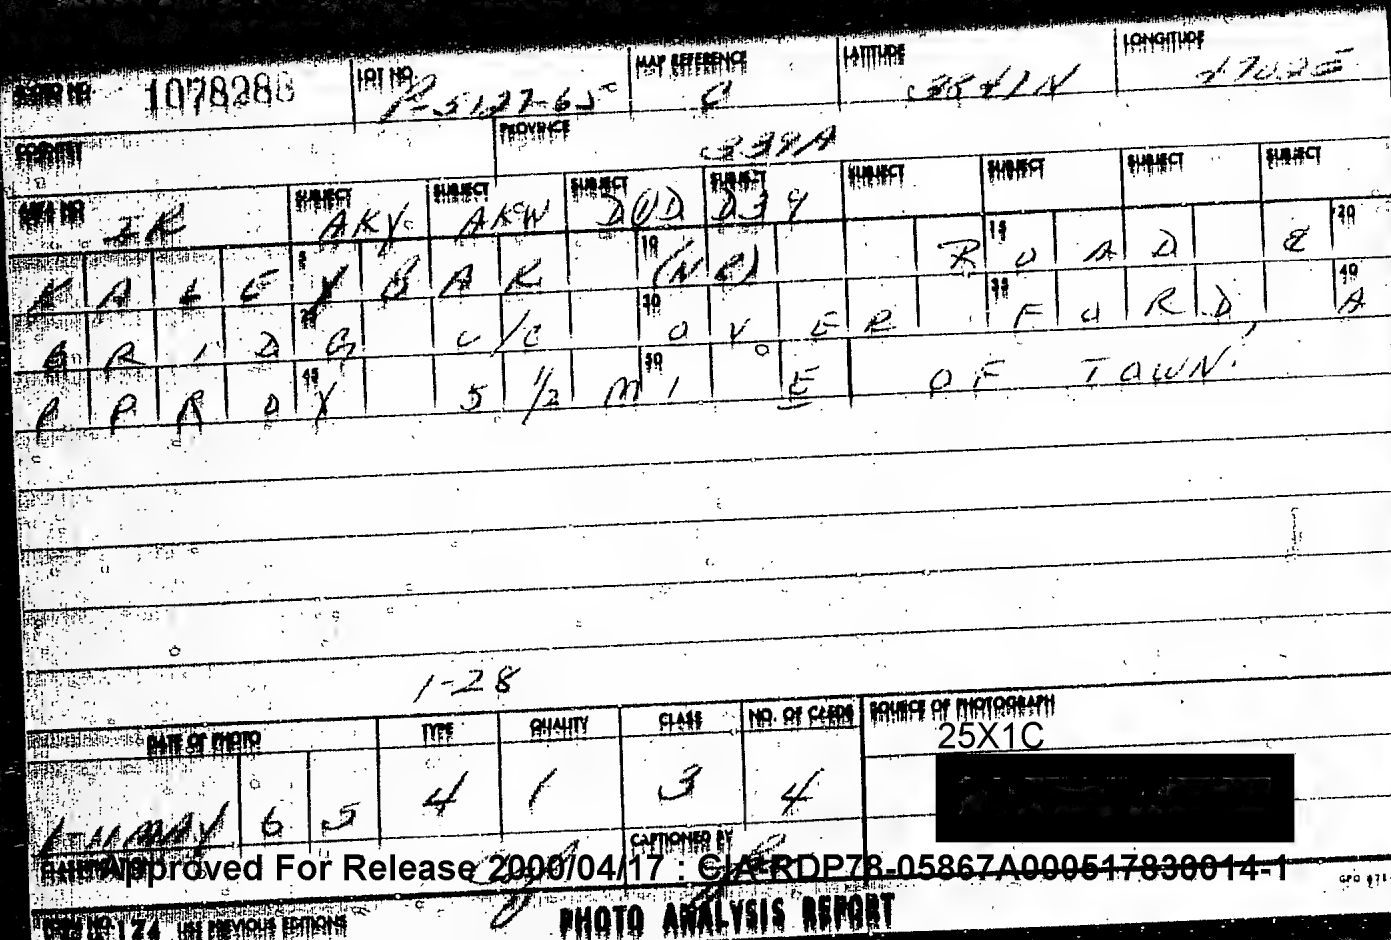 PHOTO NO. 1078288 LOT NO. P-5127-65 MAP REFERENCE C LATITUDE 3541N LONGITUDE
COUNTRY PROVINCE 339A
AREA NO. IR SUBJECT AKY SUBJECT AKW SUBJECT DOD SUBJECT D34 SUBJECT SUBJECT SUBJECT SUBJECT
5 10 (NE) ROAD & 15 20
BRIDG U/C OVER FORD, A 30 35 40
PPROX 5 1/2 MI E OF TOWN. 45 50
1-28
DATE OF PHOTO TYPE QUALITY CLASS NO. OF CARDS SOURCE OF PHOTOGRAPH
25X1C
MAY 65 4 1 3 4
CAPTIONED BY
Approved For Release 2000/04/17 : CIA-RDP78-05867A000517830014-1
FORM NO. 174 USE PREVIOUS EDITIONS PHOTO ANALYSIS REPORT